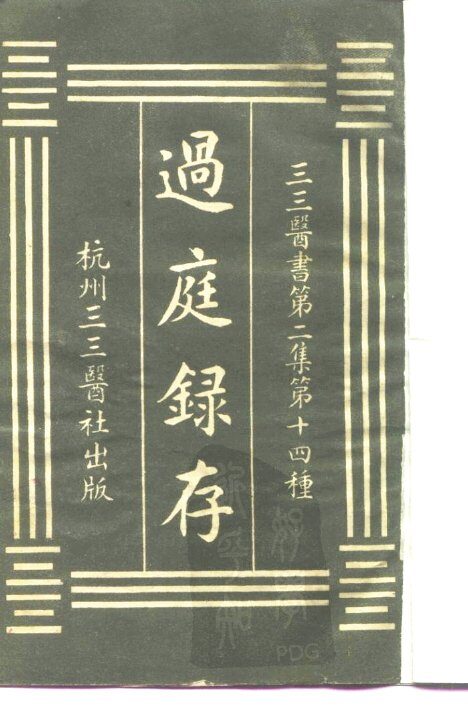 三三醫書第二集第十四種
過庭録存
杭州三三醫社出版
PDG